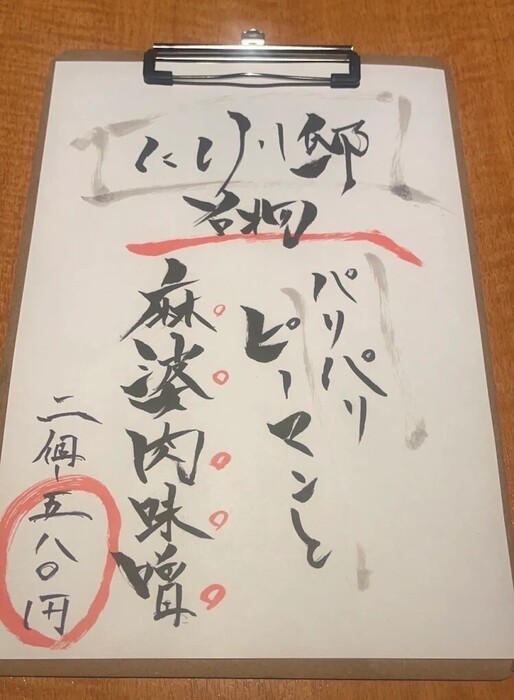 にし川邸
名物
パリパリ
ピーマンと
麻婆肉味噌
二個一五八〇円